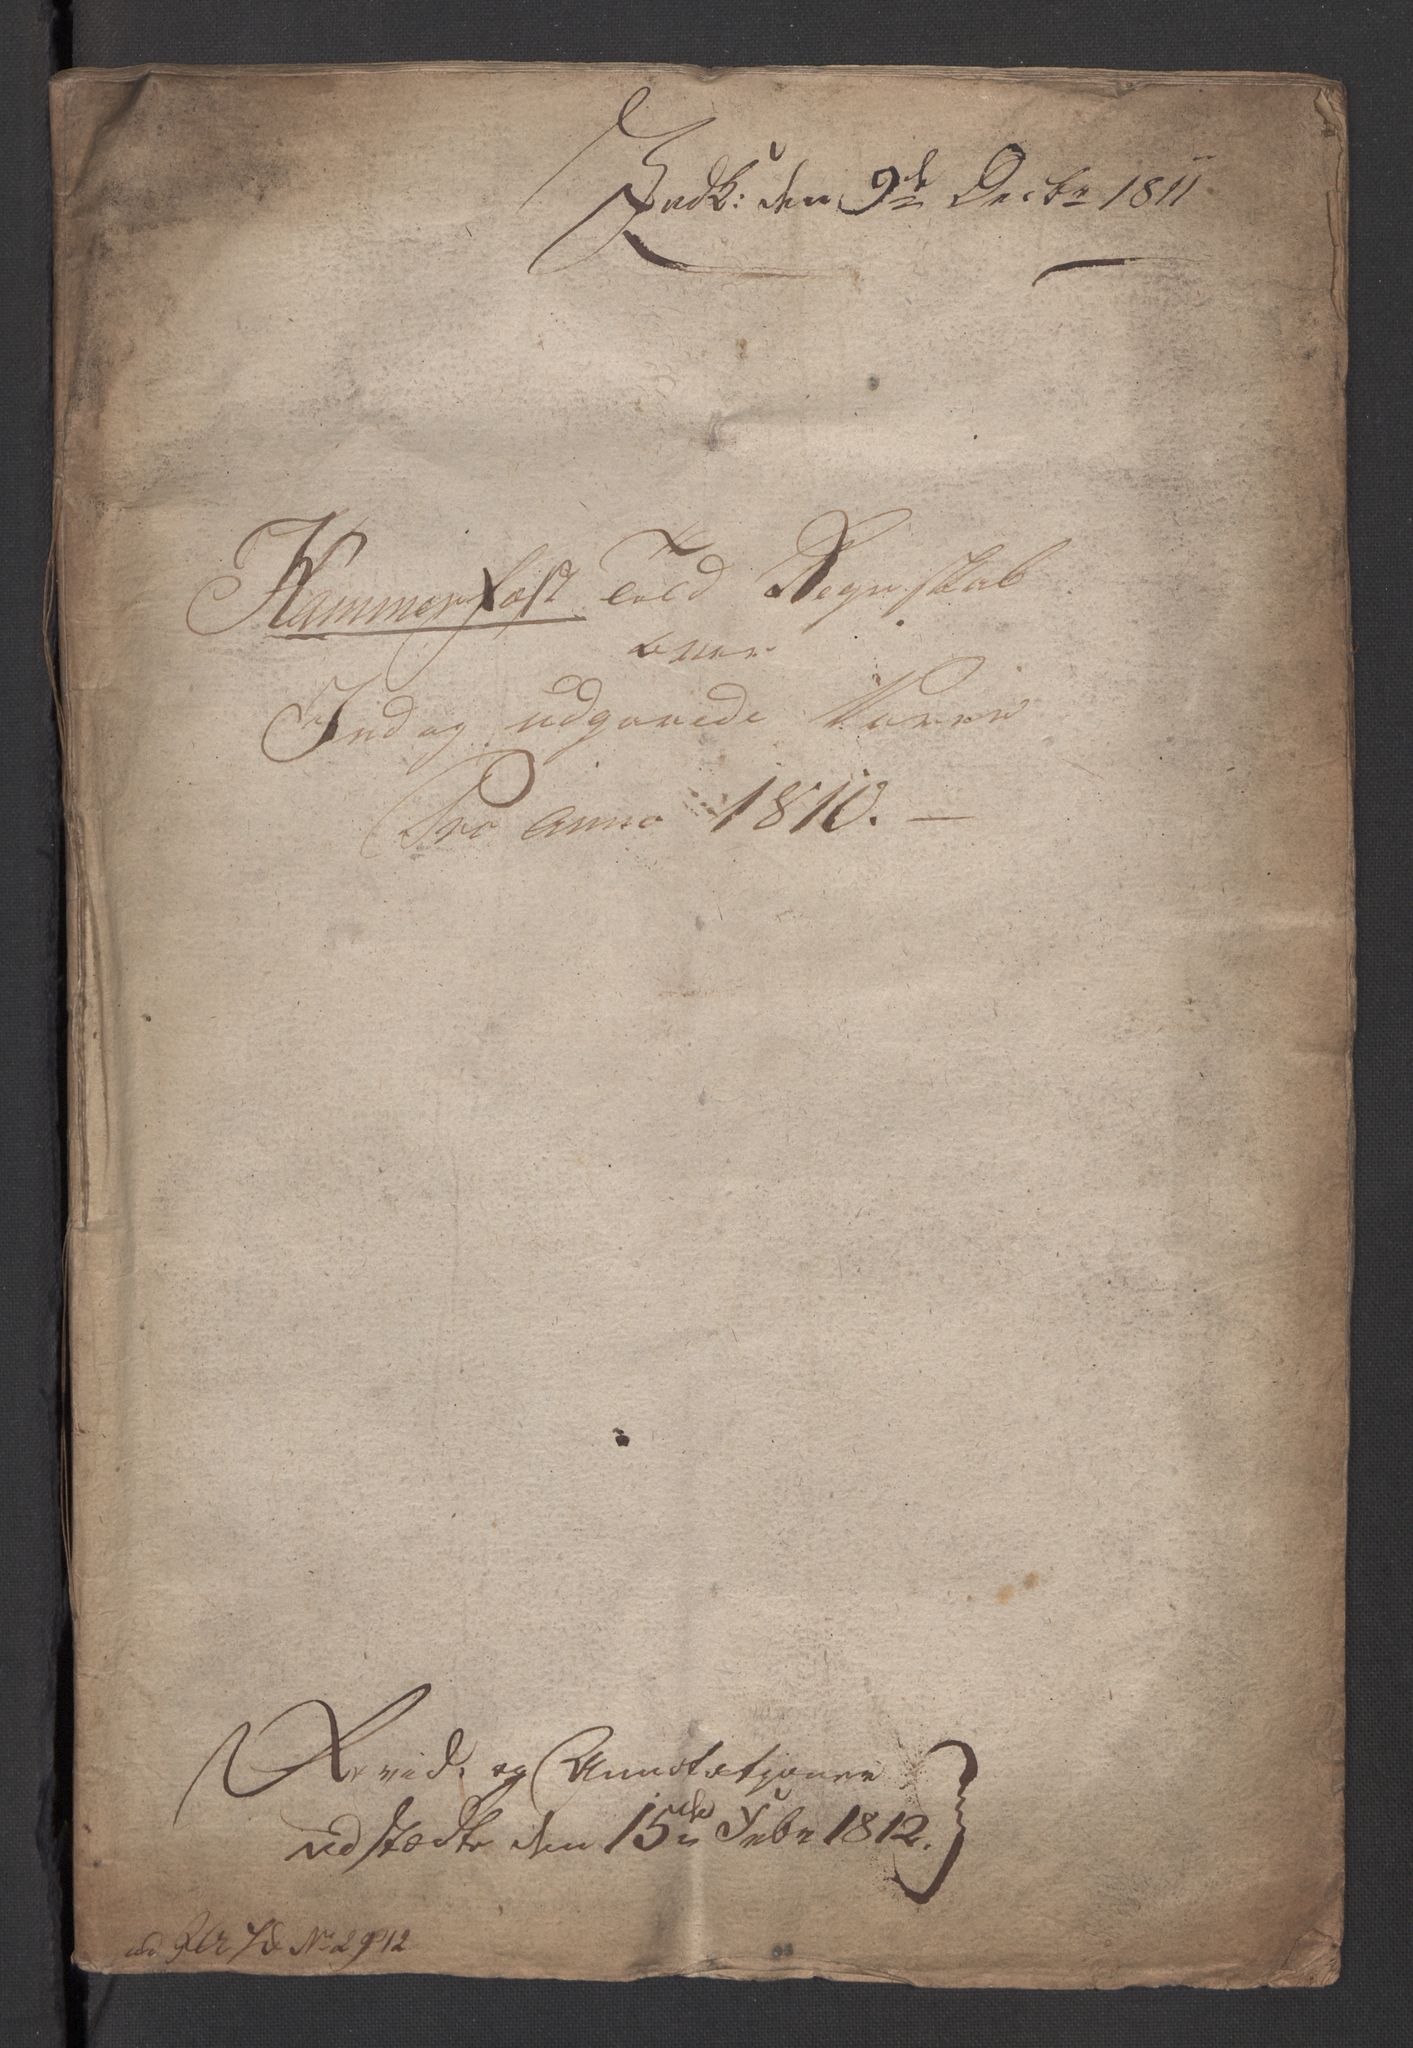 Indk: den 9de Decbr 1811
Hammerfæst Told Regnskab
over
Ind og udgaaede Varer
Pro Anno 1810. —
Revid. og Annotationer
udstædte den 15de Febr 1812.
No 29 12